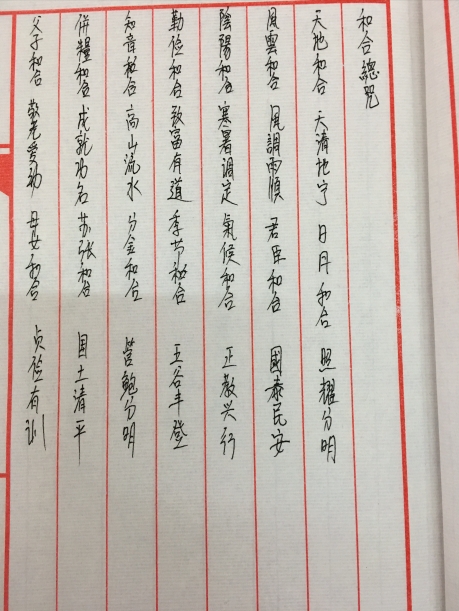 和合總咒
天地和合 天清地宁 日月和合 照耀分明
風雲和合 風調雨順 君臣和合 國泰民安
陰陽和合 寒暑調定 氣候和合 正教兴行
勤俭和合 致富有道 季节和合 五谷丰登
知音和合 高山流水 分金和合 管鲍分明
併糧和合 成就功名 苏张和合 国土清平
父子和合 敬老爱幼 母女和合 贞俭有训